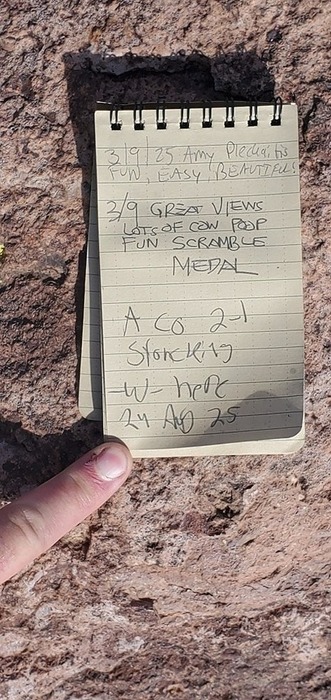 3/9/25 Amy
FUN, EASY, BEAUTIFUL!
3/9 GREAT VIEWS
LOTS OF COW POOP
FUN SCRAMBLE
MEDAL
A CO 2-1
-W- here
24 25